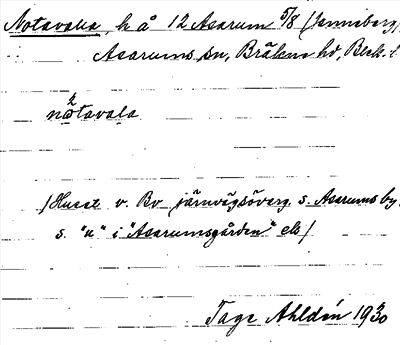 Notavala, h å 12 Asarum 5/8 (Janneberg)
Asarums sn, Bräkne hd, Blek. l.
nωtavala
/Huset v. Bv järnvägsöverg. s. Asarums by,
s. "u" i "Asarumsgården" ek/
Tage Ahldén 1930